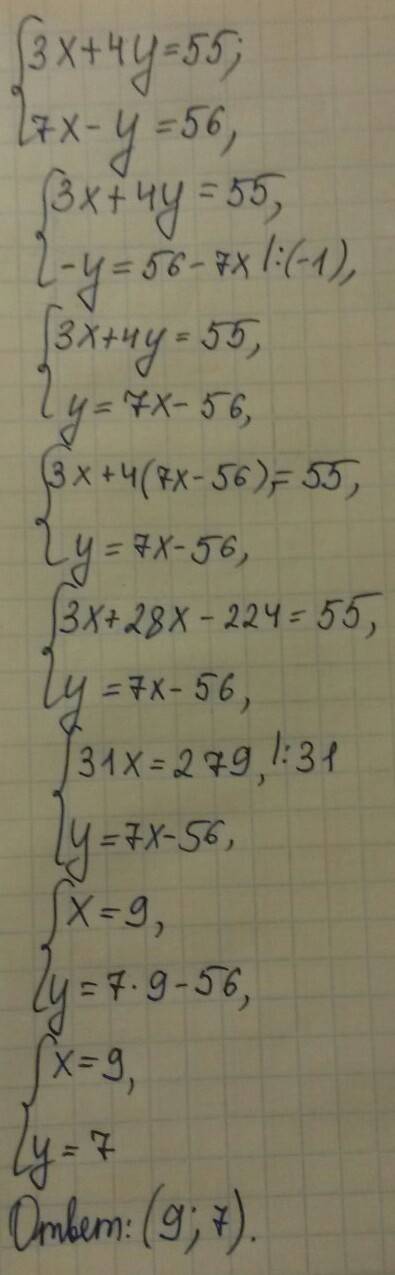 3x+4y=55;
7x-y=56,
3x+4y=55,
-y=56-7x |:(-1),
3x+4y=55,
y=7x-56,
3x+4(7x-56)=55,
y=7x-56,
3x+28x-224=55,
y=7x-56,
31x=279, |:31
y=7x-56,
x=9,
y=7·9-56,
x=9,
y=7
Ответ: (9; 7).